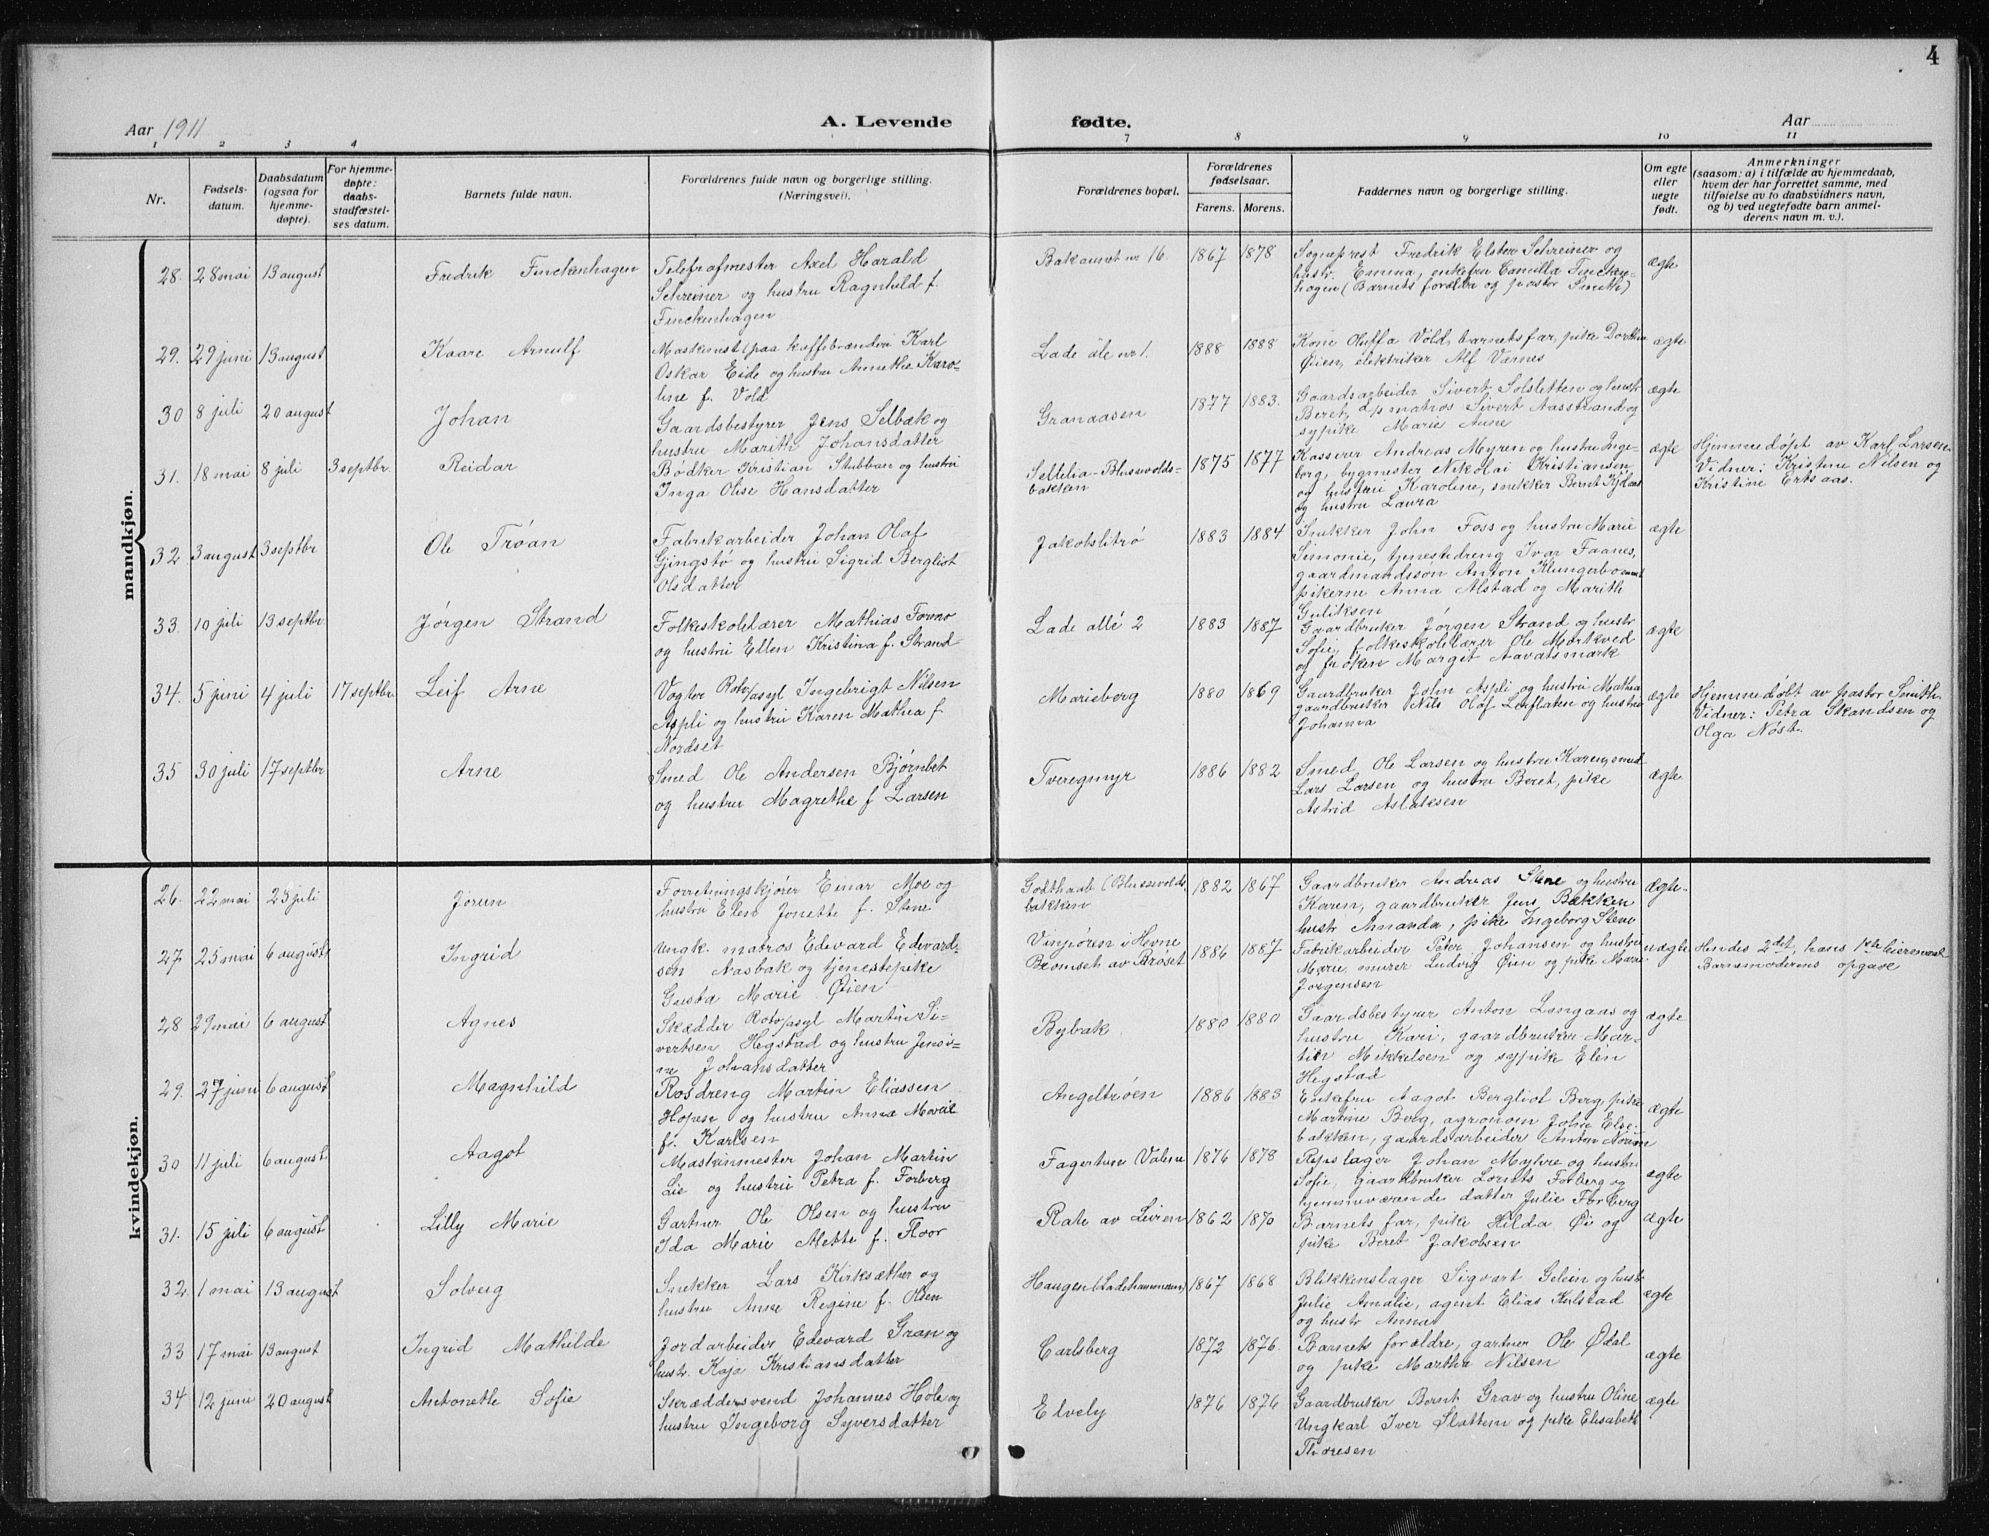 4
Aar 1911
A. Levende
fødte.
Aar
1 2 3 4 7 8 9 10 11
Nr.
Fødsels-
datum.
Daabsdatum
(ogsaa for
hjemme-
døpte).
For hjemme-
døpte:
daabs-
stadfæstel-
ses datum.
Barnets fulde navn.
Forældrenes fulde navn og borgerlige stilling.
(Næringsvei).
Forældrenes bopæl.
Forældrenes
fødselsaar.
Farens. Morens.
Faddernes navn og borgerlige stilling.
Om egte
eller
uegte
født.
Anmerkninger
(saasom: a) i tilfælde av hjemmedaab,
hvem der har forrettet samme, med
tilføielse av to daabsvidners navn,
og b) ved uegtefødte barn anmel-
derens navn m. v.).
mandkjøn.
28. 28 mai 13 august
Fredrik Finckenhagen
Telegrafmester Axel Harald
Schreiner og hustru Ragnhild f.
Finckenhagen
Bakaunet nr 16
1867 1878
Sogneprest Fredrik Elster Schreiner og
hustr. Emma, enkefru Camilla Fincken-
hagen (Barnets forældre og pastor Smith)
ægte
29. 29 juni 13 august
Kaare Arnulf
Maskinist paa kaffebrænderi Karl
Oskar Eide og hustru Annetha Karo-
line f. Vold
Lade alle nr 1.
1888 1888
Kone Oluffa Vold, barnets far, pike Dorthea
Øien, elektriker Alf Værnes
ægte
30 8 juli 20 august
Johan
Gaardsbestyrer Jens Selbæk og
hustru Marith Johansdatter
Granaasen
1877 1883.
Gaardsarbeider Sivert Solsletten og hustr
Beret, matros Sivert Naasstrand og
sypike Marie Aune
ægte
31. 18 mai 8 juli 3 septbr.
Reidar
Bødker Kristian Stubban og hustru
Inga Olise Hansdatter
Sellilia-Blussuvolds-
bakken
1875 1877
Kasserer Andreas Myren og hustru Inge-
borg, bygmester Nikolai Kristiansen
og hustru Karoline, snekker Bernt
og hustru Laura
ægte
Hjemmedøpt av Karl Larsen
Vidner: Kristine Nilsen og
Kristine Ertsaas.
32 3 august 3 septbr
Ole Trøan
Fabrikarbeider Johan Olaf
Gjingstø og hustru Sigrid Bergliot
Olsdatter
Jakobslitrø
1883 1884
Snekker John Foss og hustru Marie
Simonie, tjenestedreng Ivar Faanes,
gaardmandssøn Anton
pikerne Anna Alstad og Marith
Guliksen
ægte
33. 10 juli 13 septbr.
Jørgen Strand
Folkeskolelærer Mathias Forno
og hustru Ellen Kristina f. Strand
Lade allé 2
1883 1887
Gaardbruker Jørgen Strand og hustr
Sofie, folkeskolelærer Ole Mørkved
og frøken Marget Aavatsmark
ægte
34. 5 juni 4 juli 17 septbr.
Leif Arne
Vogter Rotv. asyl Ingebrigt Nilsen
Aspli og hustru Karen Mathea f.
Nordset
Marieborg
1880 1869
Gaardbruker John Aspli og hustru Mathea
gaardbruker Nils Olaf Leiflaten og hustru
Johanna
ægte
Hjemmedøbt av pastor Smith.
Vidner: Petra Skandsen og
Olga Nøst.
35 30 juli 17 septbr
Arne
Smed Ole Andersen Bjørnbet
og hustru Magrethe f Larsen
Tveregmyr
1886 1882
Smed Ole Larsen og hustru Karen, smed
Lars Larsen og hustru Beret, pike
Astrid Aslaksen
ægte
kvindekjøn.
26. 22 mai 23 juli
Jorun
Forretningskjører Einar Moe og
hustru Elen Jonette f. Stene
Godthaab (Blussuvolds
bakken
1882 1867
Gaardbruker Andreas Stene og hustru
Karen, gaardbruker Jens Bækken
hustr Amanda, pike Ingeborg Stene
ægte.
27 25 mai 6 august
Ingrid
Ungk. matros Edevard Edevard-
sen Nasbak og tjenestepike
Gusta Marie Øien
Vinjøren i Hevne
Bromseth av Brøset
1886 1887
Fabrikarbeider Peter Johansen og hustru
Marie, murer Ludvig Øien og pike Marie
Jørgensen
uægte
Hendes 2det, hans 1ste leiermaal
Barnemoderens opgave
28 29 mai 6 august
Agnes
Skrædder Rotv. asyl Martin Si-
vertsen Hegstad og hustru Jensi-
ne Johansdatter
Bybæk
1880 1880
Gaardsbestyrer Anton Langaas og
hustru Kari, gaardbruker Mar-
tin Mikkelsen og sypike Elen
Hegstad
ægte
29. 27 juni 6 august
Magnhild
Rosdreng Martin Eliassen
Hopen og hustru Anna Marie
f. Karlsen
Angeltrøen
1886 1883
Enkefru Aagot Bergliot Berg, pike
Martine Berg, agronom John Else-
bakken, gaardsarbeider Anton Norum
ægte
30 11 juli 6 august
Aagot
Maskinmester Johan Martin
Lie og hustru Petra f. Forberg
Fagertun Valene
1876 1878
Repslager Johan Myhre og hustru
Sofie, gaardbruker Lornts Forberg og
hjemmeværende datter Julie Forberg
ægte
31. 15 juli 6 august
Lilly Marie
Gartner Ole Olsen og hustru
Ida Marie Alette f. Floor
Rate av Leiren
1862 1870
Barnets far, pike Hilda Øi og
pike Beret Jakobsen
ægte
32. 1 mai 13 august
Solveig
Snekker Lars Kirksæther og
hustru Anne Regine f. Olsen
Haugen (Ladehammern)
1867 1868
Blikkenslager Sigvart Gelein og hustr
Julie Amalie, agent Elias Kulstad
og hustr Anna
ægte
33 17 mai 13 august
Ingrid Mathilde
Jordarbeider Edevard Gran og
hustr. Kaja Kristiansdatter
Carlsberg
1872 1876.
Barnets forældre, gartner Ole Ødal
og pike Martha Nilsen
ægte
34 12 juni 20 august
Antonette Sofie
Skræddersvend Johannes Hole og
hustru Ingeborg Syversdatter
Elvely
1876 1876
Gaardbruker Bernt Grav og hustru Oline
Ungkarl Iver Slettem og pike Elisabeth
Thoresen
ægte